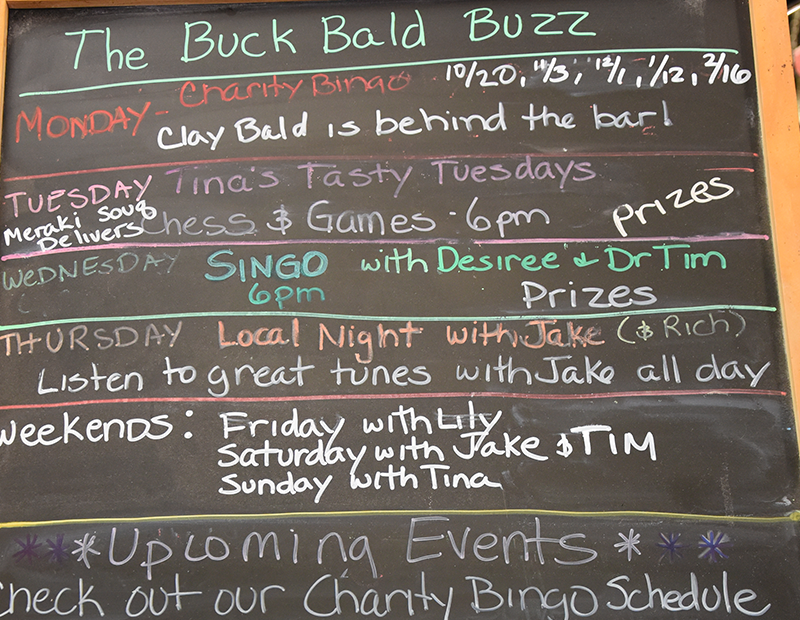 The Buck Bald Buzz
MONDAY - Charity Bingo 10/20, 11/3, 12/1, 1/12, 2/16
Clay Bald is behind the bar!
TUESDAY Tina's Tasty Tuesdays
Meraki Soug Delivers Chess & Games - 6pm Prizes
WEDNESDAY SINGO with Desiree & Dr Tim
6pm Prizes
THURSDAY Local Night with Jake (& Rich)
Listen to great tunes with Jake all day
WEEKENDS: Friday with Lily
Saturday with Jake & TIM
Sunday with Tina
***Upcoming Events ***
Check out our Charity Bingo Schedule